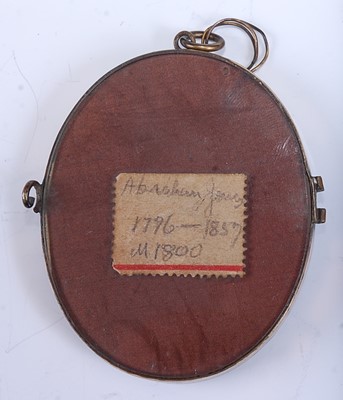 Abraham Jones
1796—1857
M1800